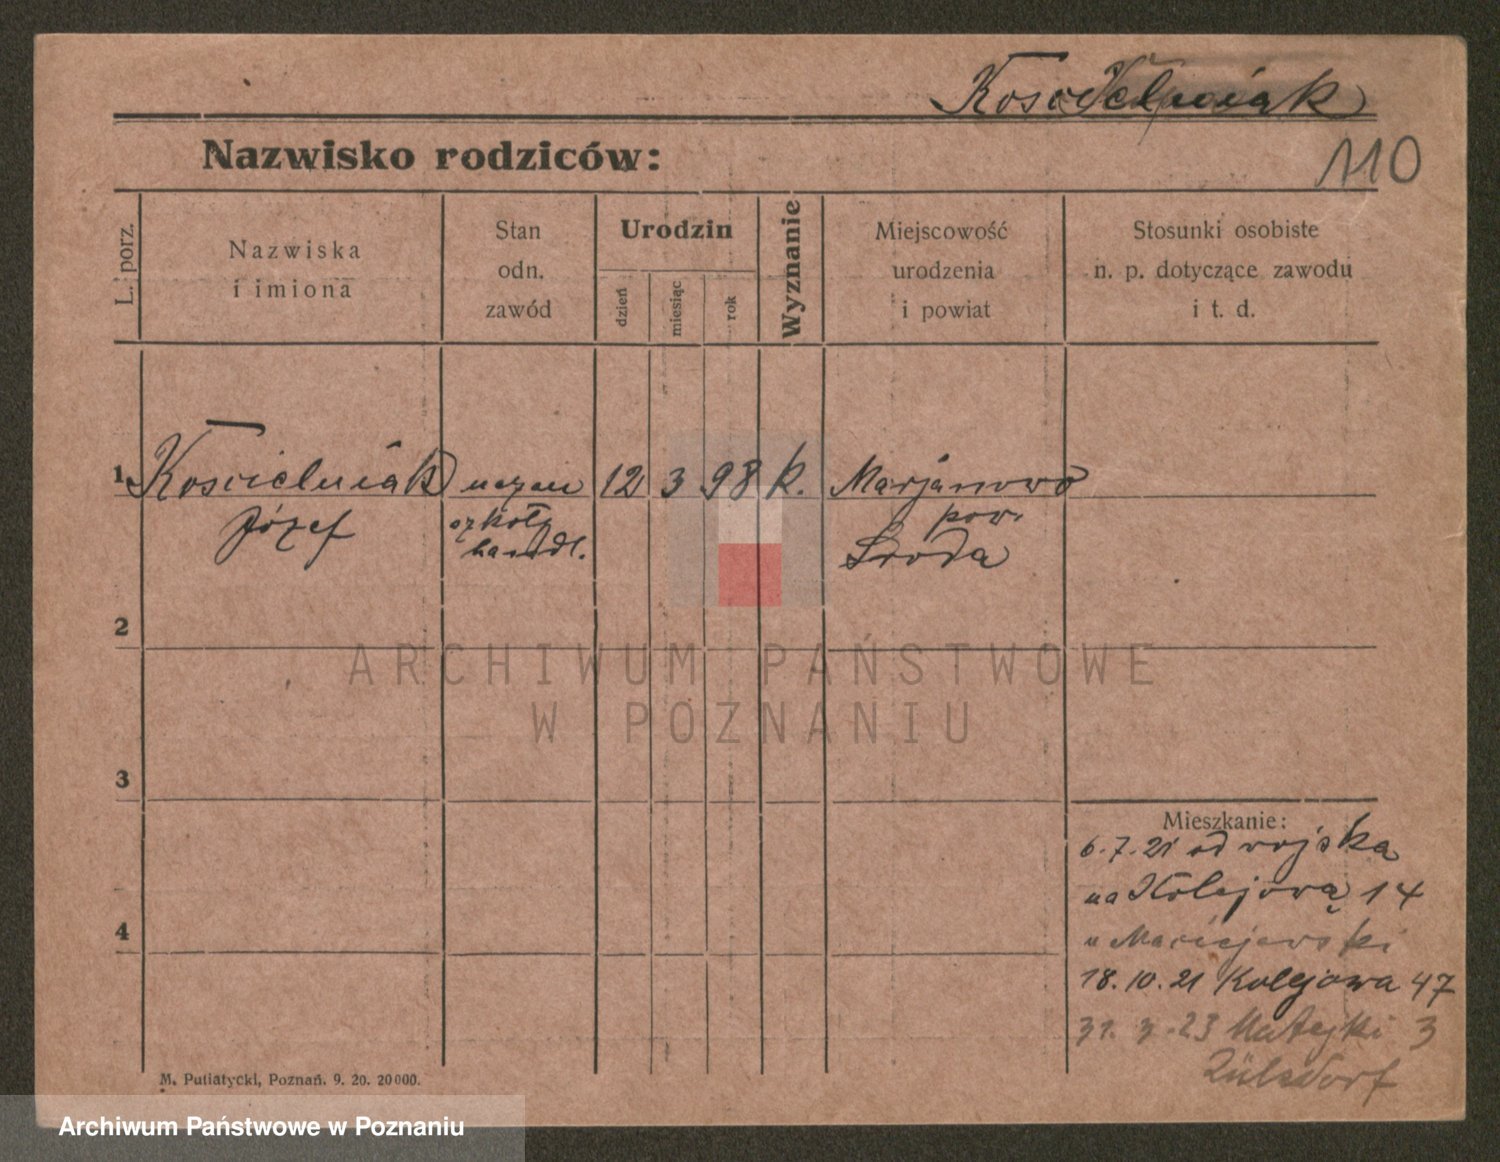 Kościelniak
110
Nazwisko rodziców:
L. porz.
Nazwiska
i imiona
Stan
odn.
zawód
Urodzin
dzień
miesiąc
rok
Wyznanie
Miejscowość
urodzenia
i powiat
Stosunki osobiste
n. p. dotyczące zawodu
i t. d.
1 Kościelniak uczeń 12 3 98 k. Marjanowo
Józef szkoły pow.
handl. Środa
2
3
4
Mieszkanie:
6.7.21 od wojska
na Kolejową 14
u Maciejewski
18.10.21 Kolejowa 47
31. 3. 23 Matejki 3
Zülsdorf
M. Putiatycki, Poznań. 9. 20. 20000.
ARCHIWUM PAŃSTWOWE
W POZNANIU
Archiwum Państwowe w Poznaniu